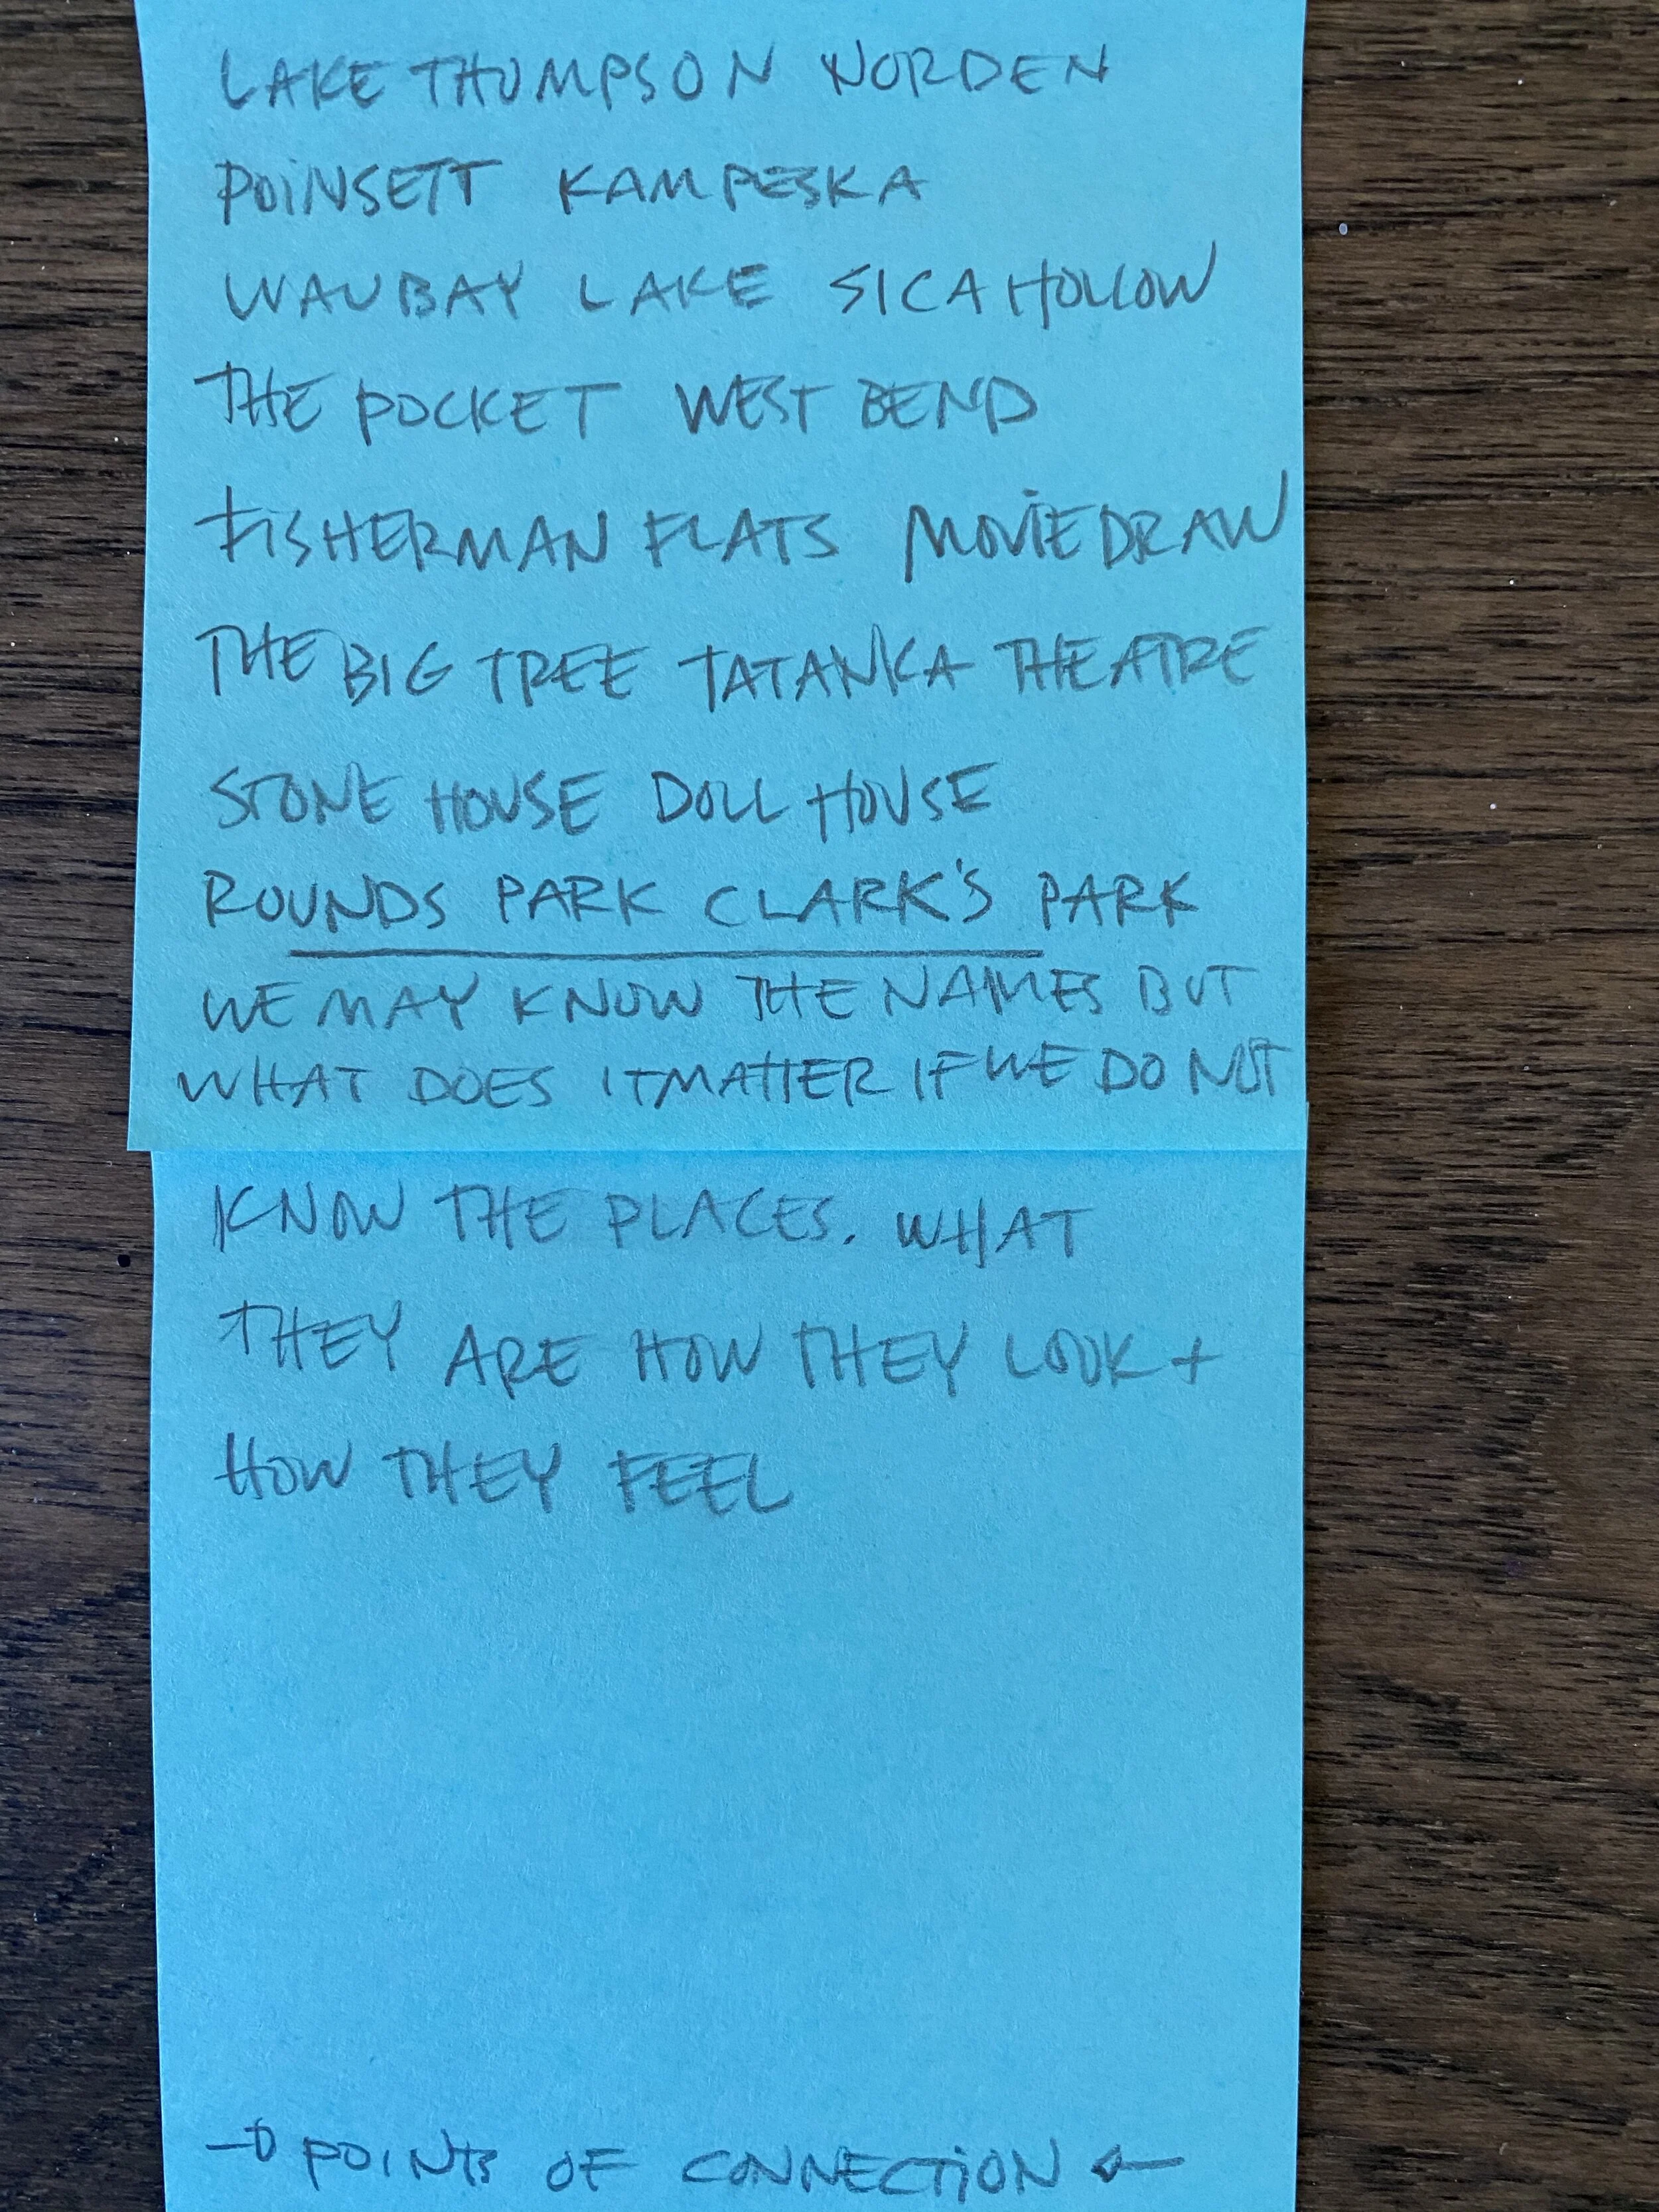 LAKE THOMPSON NORDEN
POINSETT KAMPESKA
WAUBAY LAKE SICA HOLLOW
THE POCKET WEST BEND
FISHERMAN FLATS MOVIE DRAW
THE BIG TREE TATANKA THEATRE
STONE HOUSE DOLL HOUSE
ROUNDS PARK CLARK'S PARK
WE MAY KNOW THE NAMES BUT
WHAT DOES IT MATTER IF WE DO NOT
KNOW THE PLACES. WHAT
THEY ARE HOW THEY LOOK +
HOW THEY FEEL
→ POINTS OF CONNECTION ←